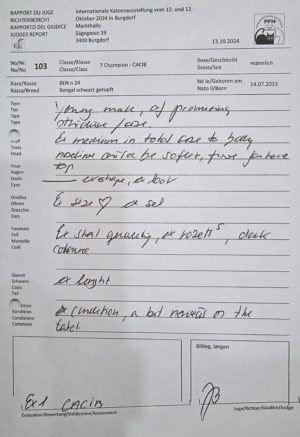 RAPPORT DU JUGE
RICHTERBERICHT
RAPPORTO DEL GIUDICE
JUDGES REPORT
Internationale Katzenausstellung vom 12. und 12.
Oktober 2024 in Burgdorf
Markthalle
Sägegasse 19
3400 Burgdorf
FFH
13.10.2024
No/Nr. 103
Classe/Klasse 7 Champion - CACIB
Classe/Class
Sexe/Geschlecht männlich
Sesso/Sex
Race/Rasse BEN n 24
Razza/Breed Bengal schwarz getupft
Né le/Geboren am 14.07.2023
Nato il/Born
Type
Typ
Tipo
Type
young male, of promising
size.
Tête
Kopf
Testa
Head
Ex medium in total size to body
could be softer,
top
Yeux
Augen
Occhi
Eyes
ex shape, ex
Oreilles
Ohren
Orecchie
Ears
Ex size ex set
Fourrure
Fell
Mantello
Coat
Ex quality, ex dark
Queue
Schwanz
Coda
Tail
ex
Condition
Kondition
Condizioni
Comment
ex condition, a bit nervous on the
table.
Billing, Jørgen
Ex 1 CACIB
JB
Evaluation/Bewertung/Validazione/Assessment
Juge/Richter/Giudice/Judge